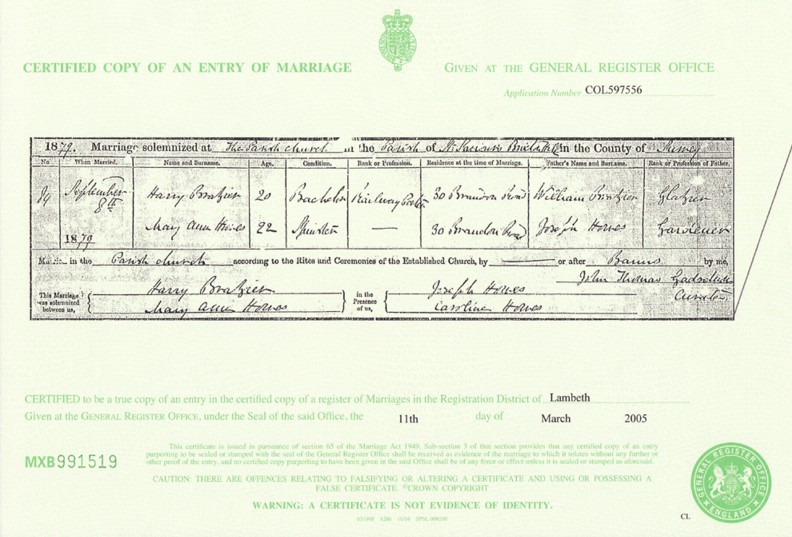 CERTIFIED COPY OF AN ENTRY OF MARRIAGE
GIVEN AT THE GENERAL REGISTER OFFICE
Application Number COL597556
1879. Marriage solemnized at The Parish church in the Parish of in the County of Surrey
No. When Married. Name and Surname. Age. Condition. Rank or Profession. Residence at the time of Marriage. Father's Name and Surname. Rank or Profession of Father.
September 8th 1879
Harry 20 Bachelor Railway 30 Brandon Road William Glazier
Mary Ann Howes 22 Spinster — 30 Brandon Road Joseph Howes Gardener
Married in the Parish church according to the Rites and Ceremonies of the Established Church, by or after Banns by me,
John Thomas
Curate
This Marriage was solemnized between us,
Harry
Mary Ann Howes
in the Presence of us,
Joseph Howes
Caroline Howes
CERTIFIED to be a true copy of an entry in the certified copy of a register of Marriages in the Registration District of Lambeth
Given at the GENERAL REGISTER OFFICE, under the Seal of the said Office, the 11th day of March 2005
MXB 991519
This certificate is issued in pursuance of section 65 of the Marriage Act 1949. Sub-section 3 of that section provides that any certified copy of an entry
purporting to be sealed or stamped with the seal of the General Register Office shall be received as evidence of the marriage to which it relates without any further or
other proof of the entry, and no certified copy purporting to have been given in the said Office shall be of any force or effect unless it is sealed or stamped as aforesaid.
CAUTION: THERE ARE OFFENCES RELATING TO FALSIFYING OR ALTERING A CERTIFICATE AND USING OR POSSESSING A
FALSE CERTIFICATE. ©CROWN COPYRIGHT
WARNING: A CERTIFICATE IS NOT EVIDENCE OF IDENTITY.
GENERAL REGISTER OFFICE
ENGLAND
CL